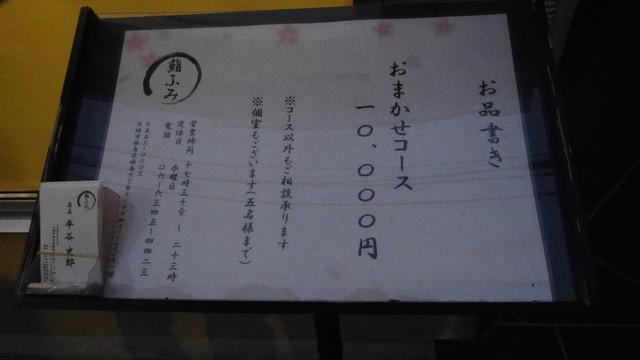 お品書き
おまかせコース
一〇,〇〇〇円
※コース以外もご相談承ります
※個室もございます(五名様まで)
鮨ふみ
営業時間 十七時三十分 〜 二十三時
定休日 水曜日
電話 〇六ー六三四五ー四四二三
〒五五三ー〇〇〇三
鮨ふみ
店主 平谷 史郎